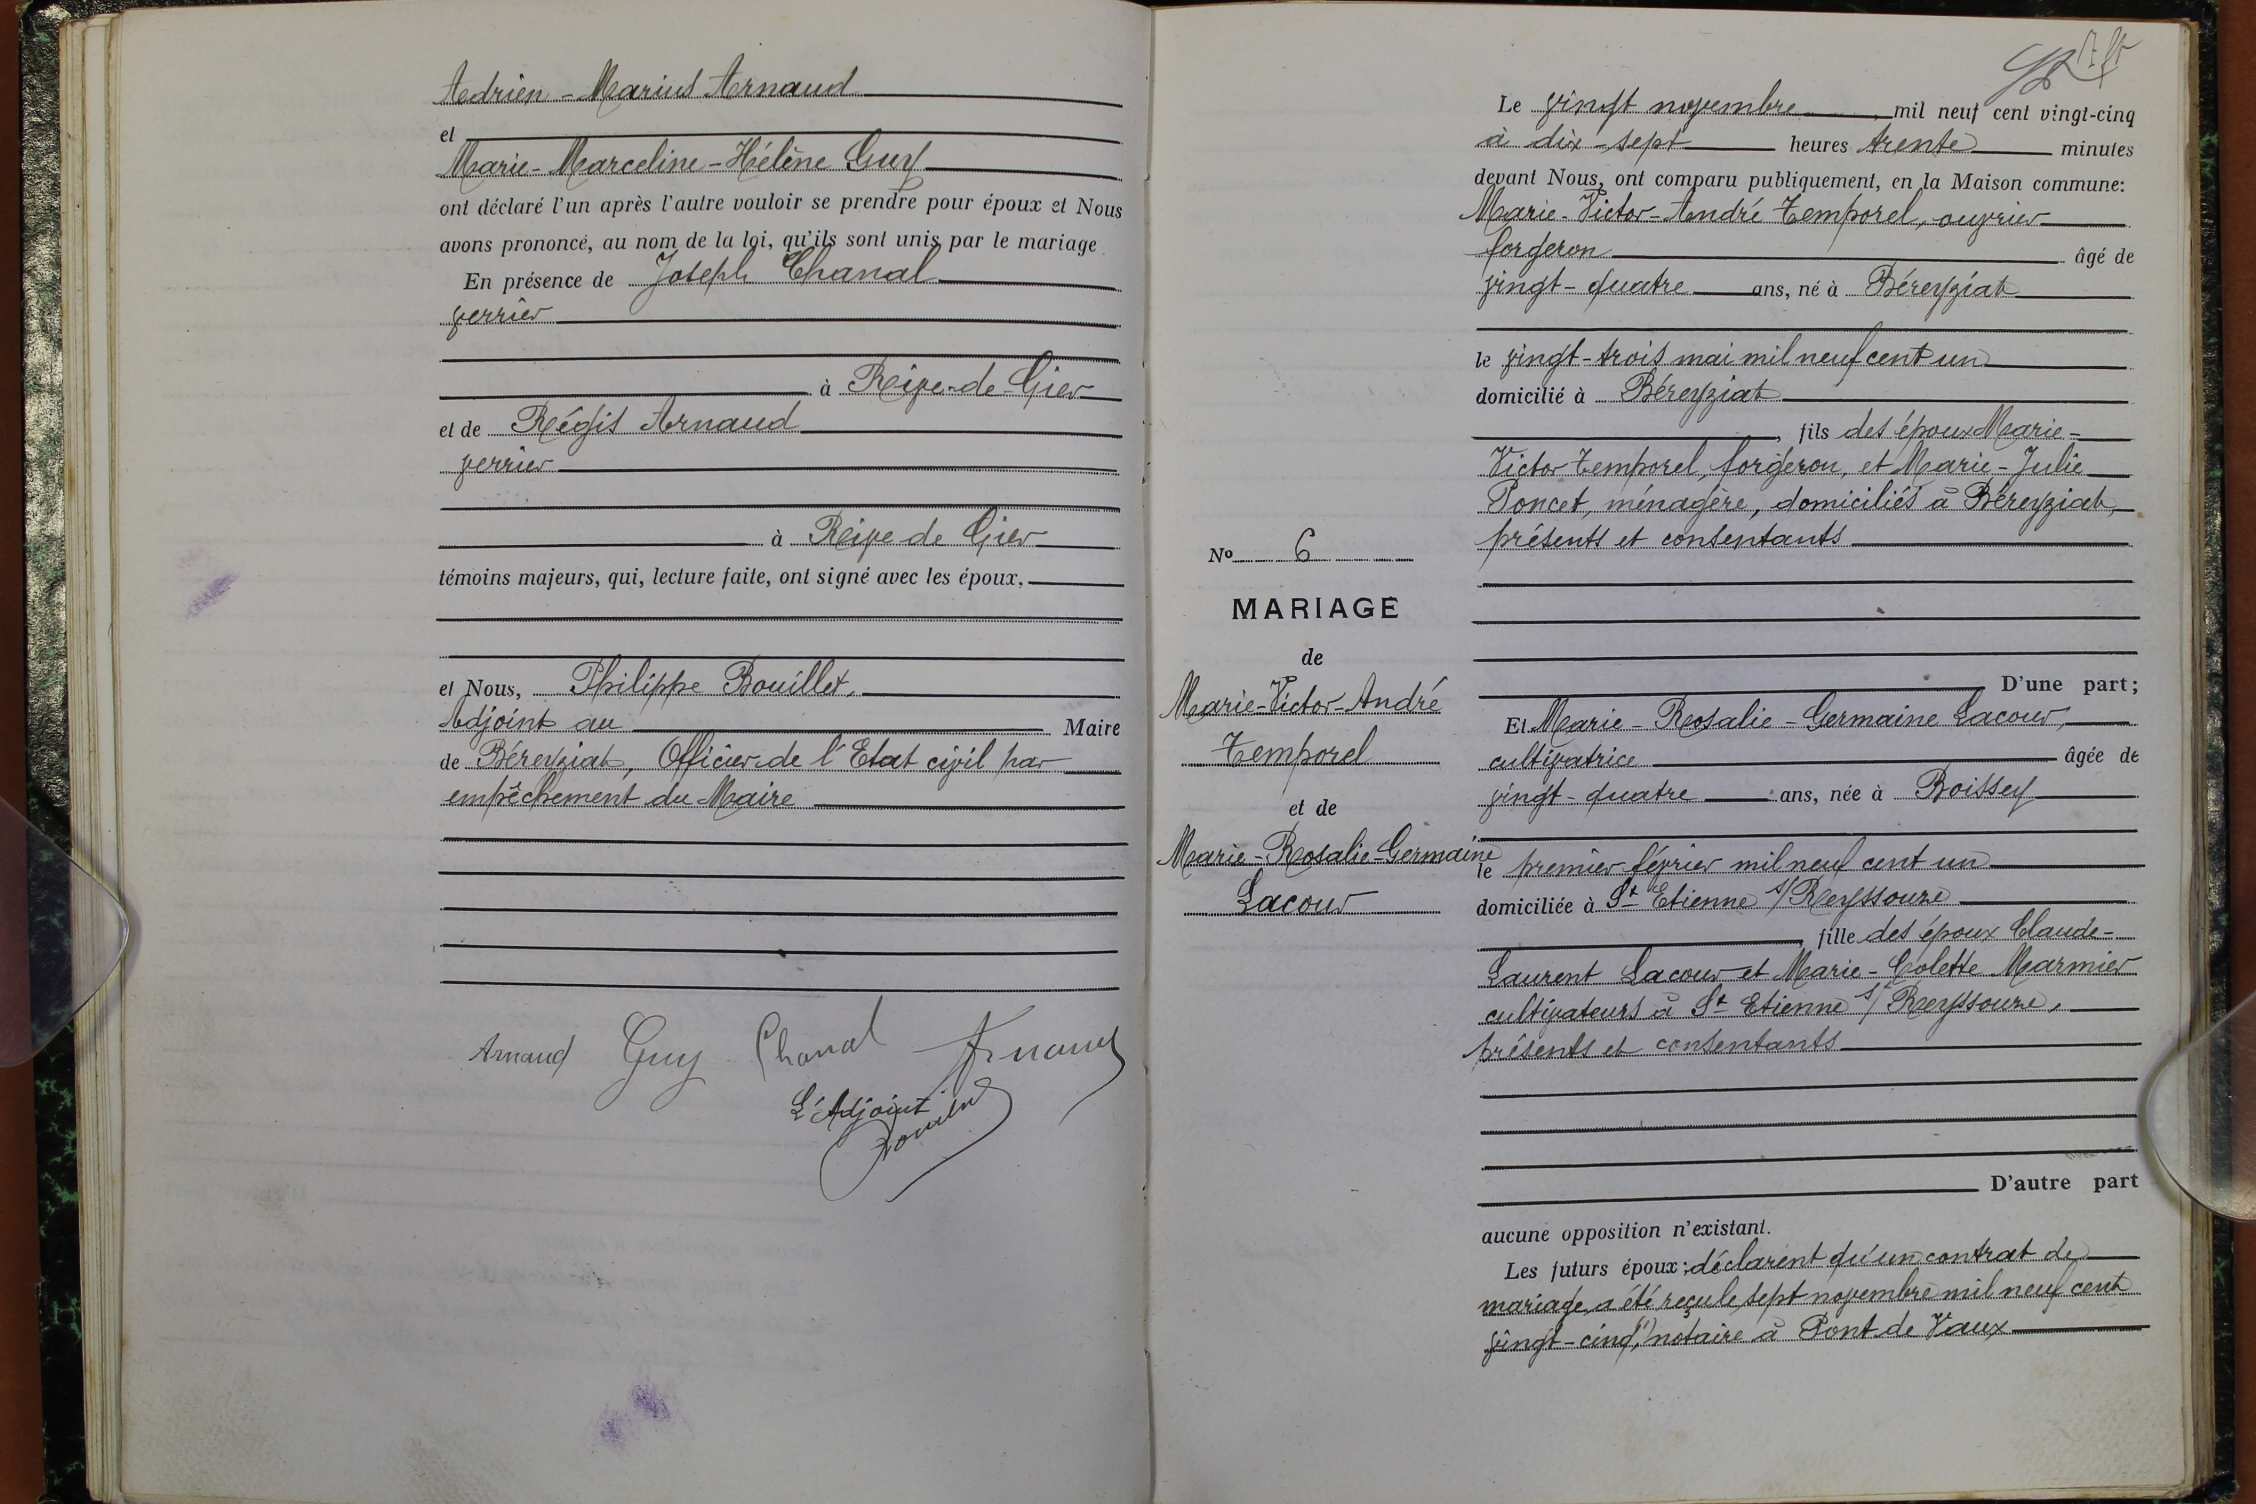 Adrien-Marius Arnaud
et
Marie-Marceline-Hélène Guy
ont déclaré l'un après l'autre vouloir se prendre pour époux et Nous
avons prononcé, au nom de la loi, qu'ils sont unis par le mariage
En présence de Joseph Chanal
verrier
à Rive-de-Gier
et de Régis Arnaud
verrier
à Rive de Gier
témoins majeurs, qui, lecture faite, ont signé avec les époux,
et Nous, Philippe Bouillet,
Adjoint au Maire
de Béreyziat, Officier de l'Etat civil par
empêchement du Maire
Arnaud Guy Chanal Arnaud
L'Adjoint
Bouillet
Le vingt novembre, mil neuf cent vingt-cinq
à dix-sept heures trente minutes
devant Nous, ont comparu publiquement, en la Maison commune:
Marie-Victor-André Temporel, ouvrier
forgeron âgé de
vingt-quatre ans, né à Béreyziat
le vingt-trois mai mil neuf cent un
domicilié à Béreyziat
, fils des époux Marie-
Victor Temporel, forgeron, et Marie-Julie
Poncet, ménagère, domiciliés à Béreyziat,
présents et consentants
D'une part;
Et Marie-Rosalie-Germaine Lacour,
cultivatrice âgée de
vingt-quatre ans, née à Boissey
le premier février mil neuf cent un
domiciliée à St Etienne s/Reyssouze
, fille des époux Claude-
Laurent Lacour et Marie-Colette Marmier
cultivateurs à St Etienne s/Reyssouze,
présents et consentants
D'autre part
aucune opposition n'existant.
Les futurs époux: déclarent qu'un contrat de
mariage a été reçu le sept novembre mil neuf cent
vingt-cinq, (1) notaire à Pont de Vaux
No 6
MARIAGE
de
Marie-Victor-André
Temporel
et de
Marie-Rosalie-Germaine
Lacour